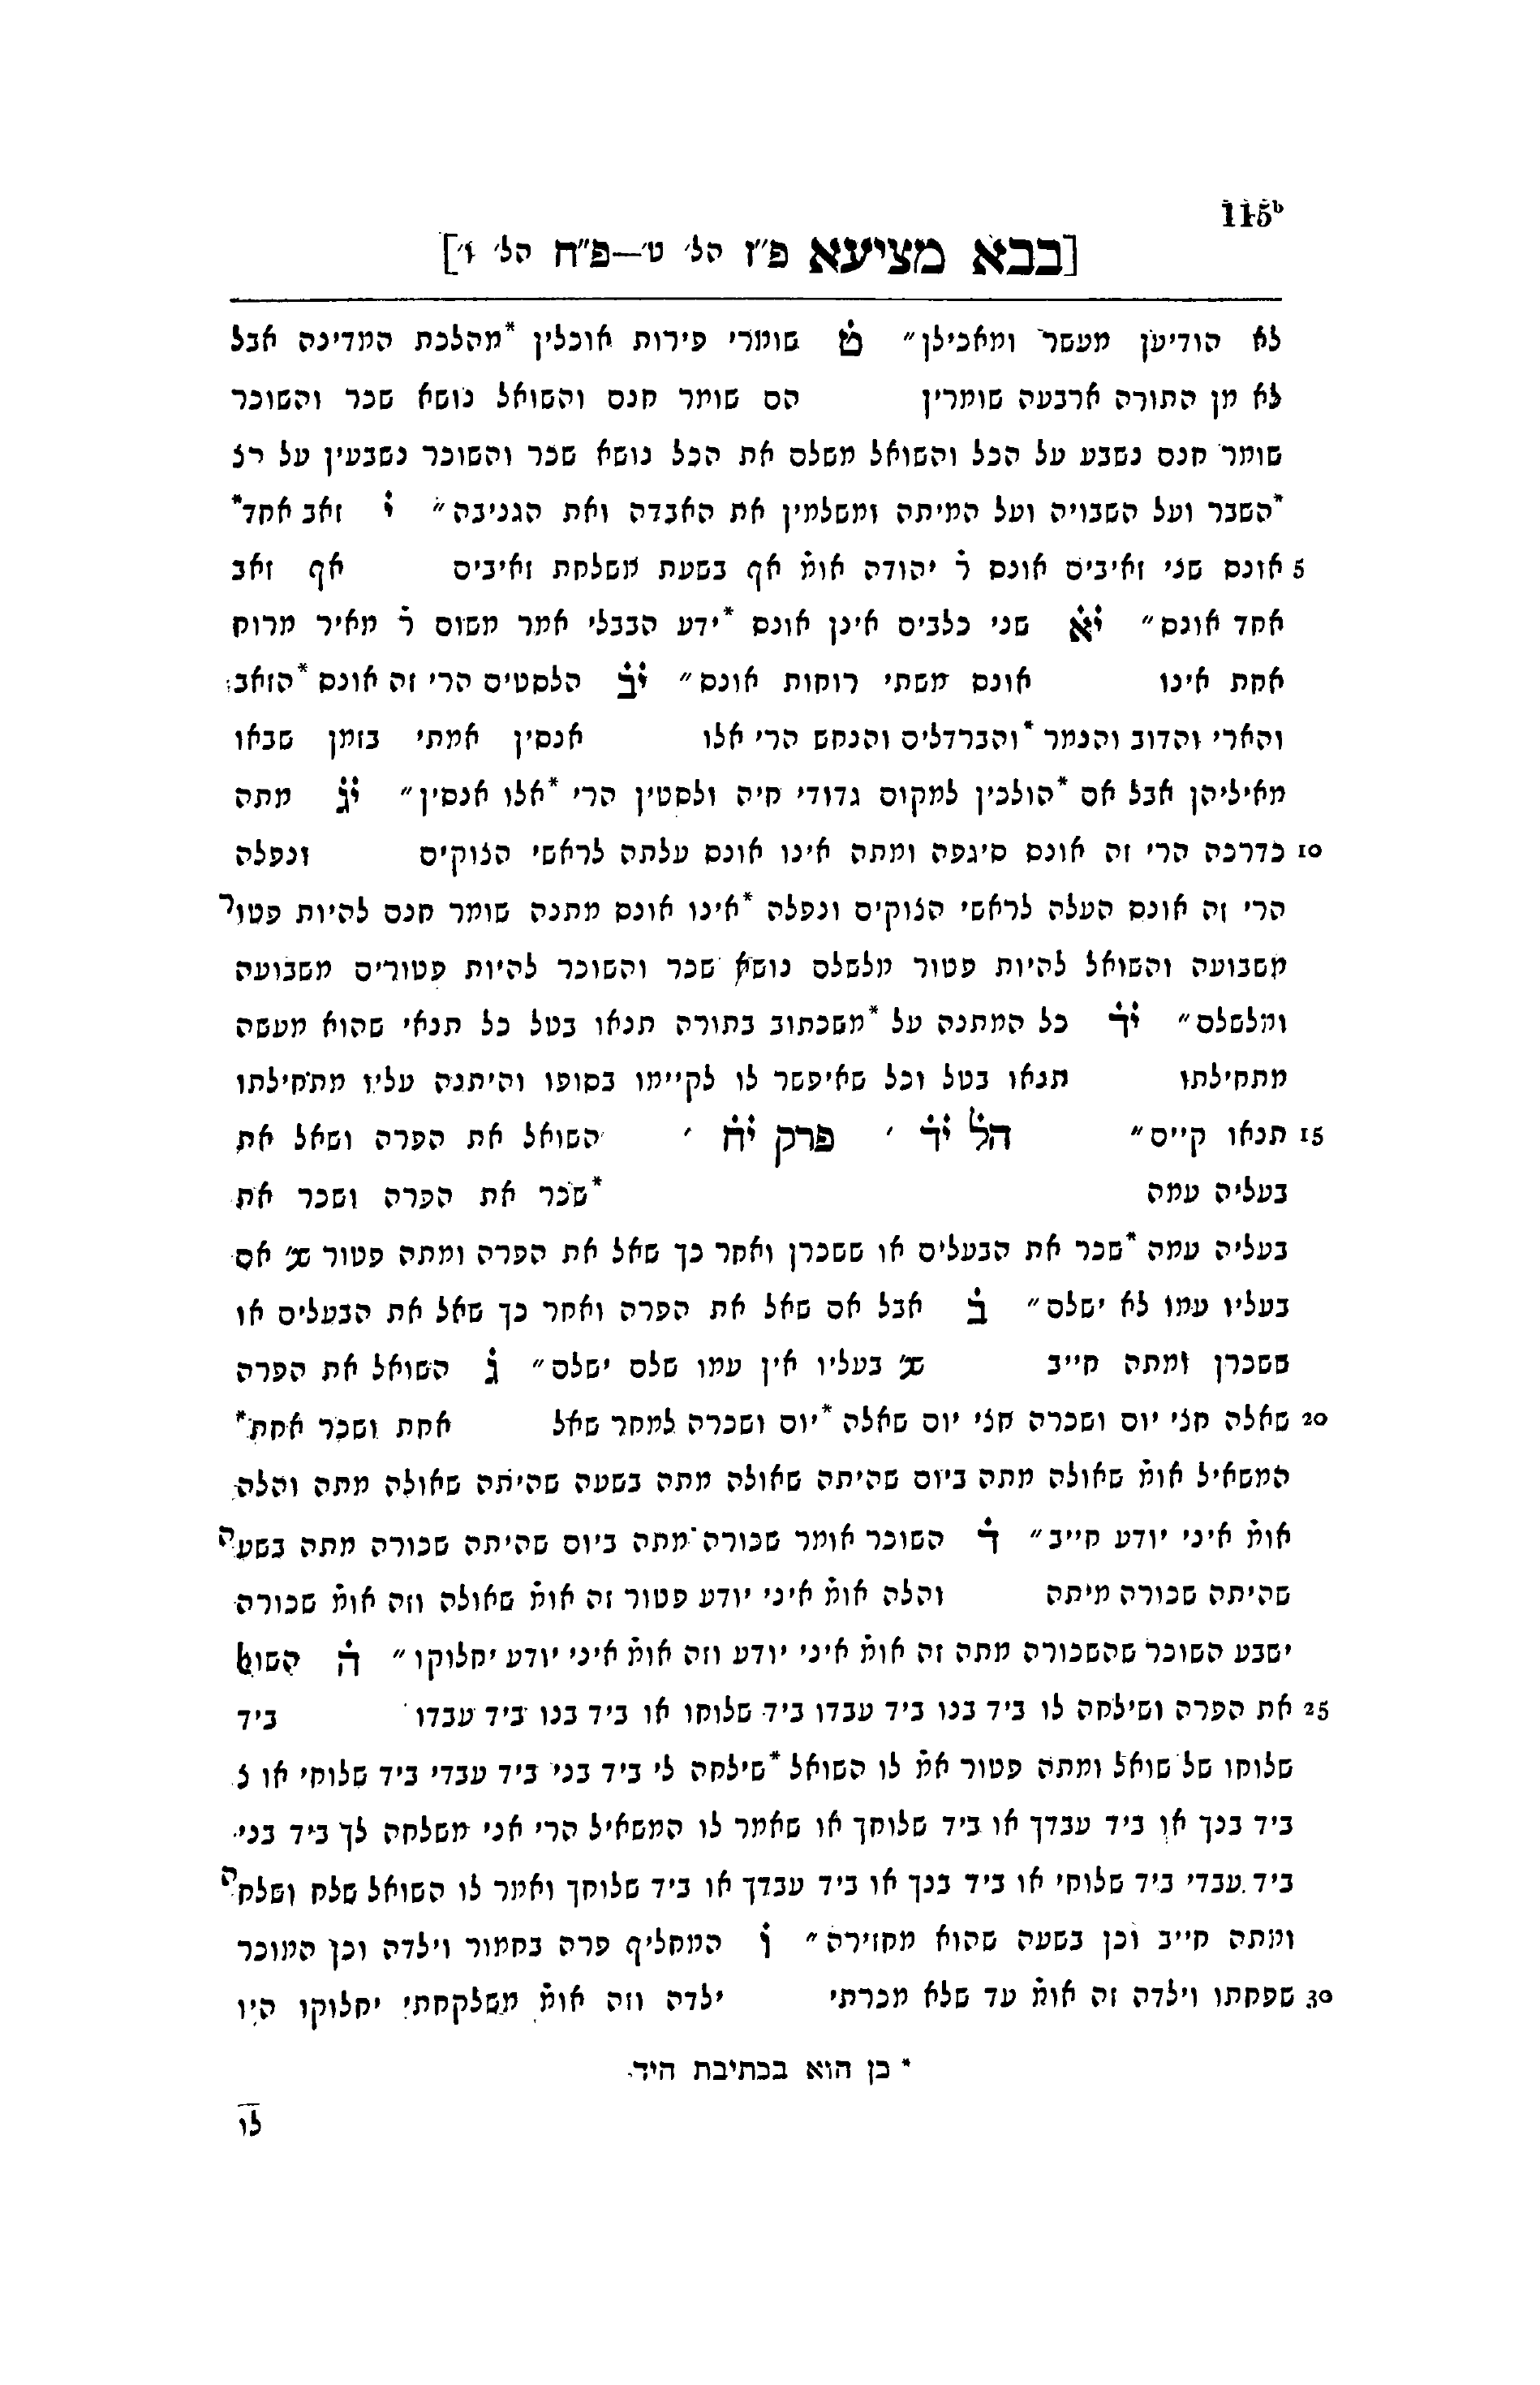 115b
[בבא מציעא פ״ז הל׳ ט׳—פ״ח הל׳ ו׳]
לא הודיען מעשר ומאכילן״ ט שומרי פירות אוכלין *מהלכת המדינה אבל
לא מן התורה ארבעה שומרין הם שומר חנם והשואל נושא שכר והשוכר
שומר חנם נשבע על הכל והשואל משלם את הכל נושא שכר והשוכר נשבעין על
*השבר ועל השבויה ועל המיתה ומשלמין את האבדה ואת הגניבה״ י זאב אחד*
5 אונס שני זאיבים אונס ר̇ יהודה אומ̇ אף בשעת משלחת זאיבים אף זאב
אחד אונס״ יא שני כלבים אינן אונס *ידע הבבלי אמר משום ר̇ מאיר מרוח
אחת אינו אונס משתי רוחות אונס״ יב הלסטים הרי זה אונס *הזאב
והארי והדוב והנמר *והברדלים והנחש הרי אלו אנסין אמתי בזמן שבאו
מאיליהן אבל אם *הולכין למקום גדודי חיה ולסטין הרי *אלו אנסין״ יג מתה
10 כדרכה הרי זה אונס סיגפה ומתה אינו אונס עלתה לראשי הצוקים ונפלה
הרי זה אונס העלה לראשי הצוקים ונפלה *אינו אונס מתנה שומר חנם להיות פטור
משבועה והשואל להיות פטור מלשלם נושא שכר והשוכר להיות פטורים משבועה
ומלשלם״ יד כל המתנה על *משכתוב בתורה תנאו בטל כל תנאי שהוא מעשה
מתחילתו תנאו בטל וכל שאיפשר לו לקיימו בסופו והיתנה עליו מתחילתו
15 תנאו קיים״ הל̇ יד ׳ פרק יח ׳ השואל את הפרה ושאל את
בעליה עמה *שכר את הפרה ושכר את
בעליה עמה *שכר את הבעלים או ששכרן ואחר כך שאל את הפרה ומתה פטור שנ׳ אם
בעליו עמו לא ישלם״ ב אבל אם שאל את הפרה ואחר כך שאל את הבעלים או
ששכרן ומתה חייב שנ׳ בעליו אין עמו שלם ישלם״ ג השואל את הפרה
20 שאלה חצי יום ושכרה חצי יום שאלה *יום ושכרה למחר שאל אחת ושכר אחת*
המשאיל אומ̇ שאולה מתה ביום שהיתה שאולה מתה בשעה שהיתה שאולה מתה והלה
אומ̇ איני יודע חייב״ ד השוכר אומר שכורה מתה ביום שהיתה שכורה מתה בשעה
שהיתה שכורה מיתה והלה אומ̇ איני יודע פטור זה אומ̇ שאולה וזה אומ̇ שכורה
ישבע השוכר שהשכורה מתה זה אומ̇ איני יודע וזה אומ̇ איני יודע יחלוקו״ ה השואל
25 את הפרה ושילחה לו ביד בנו ביד עבדו ביד שלוחו או ביד בנו ביד עבדו ביד
שלוחו של שואל ומתה פטור אמ̇ לו השואל *שילחה לי ביד בני ביד עבדי ביד שלוחי או
ביד בנך או ביד עבדך או ביד שלוחך או שאמר לו המשאיל הרי אני משלחה לך ביד בני
ביד עבדי ביד שלוחי או ביד בנך או ביד עבדך או ביד שלוחך ואמר לו השואל שלח ושלחה
ומתה חייב וכן בשעה שהוא מחזירה״ ו המחליף פרה בחמור וילדה וכן המוכר
30 שפחתו וילדה זה אומ̇ עד שלא מכרתי ילדה וזה אומ̇ משלקחתי יחלוקו היו
* כן הוא בכתיבת היד.
לו